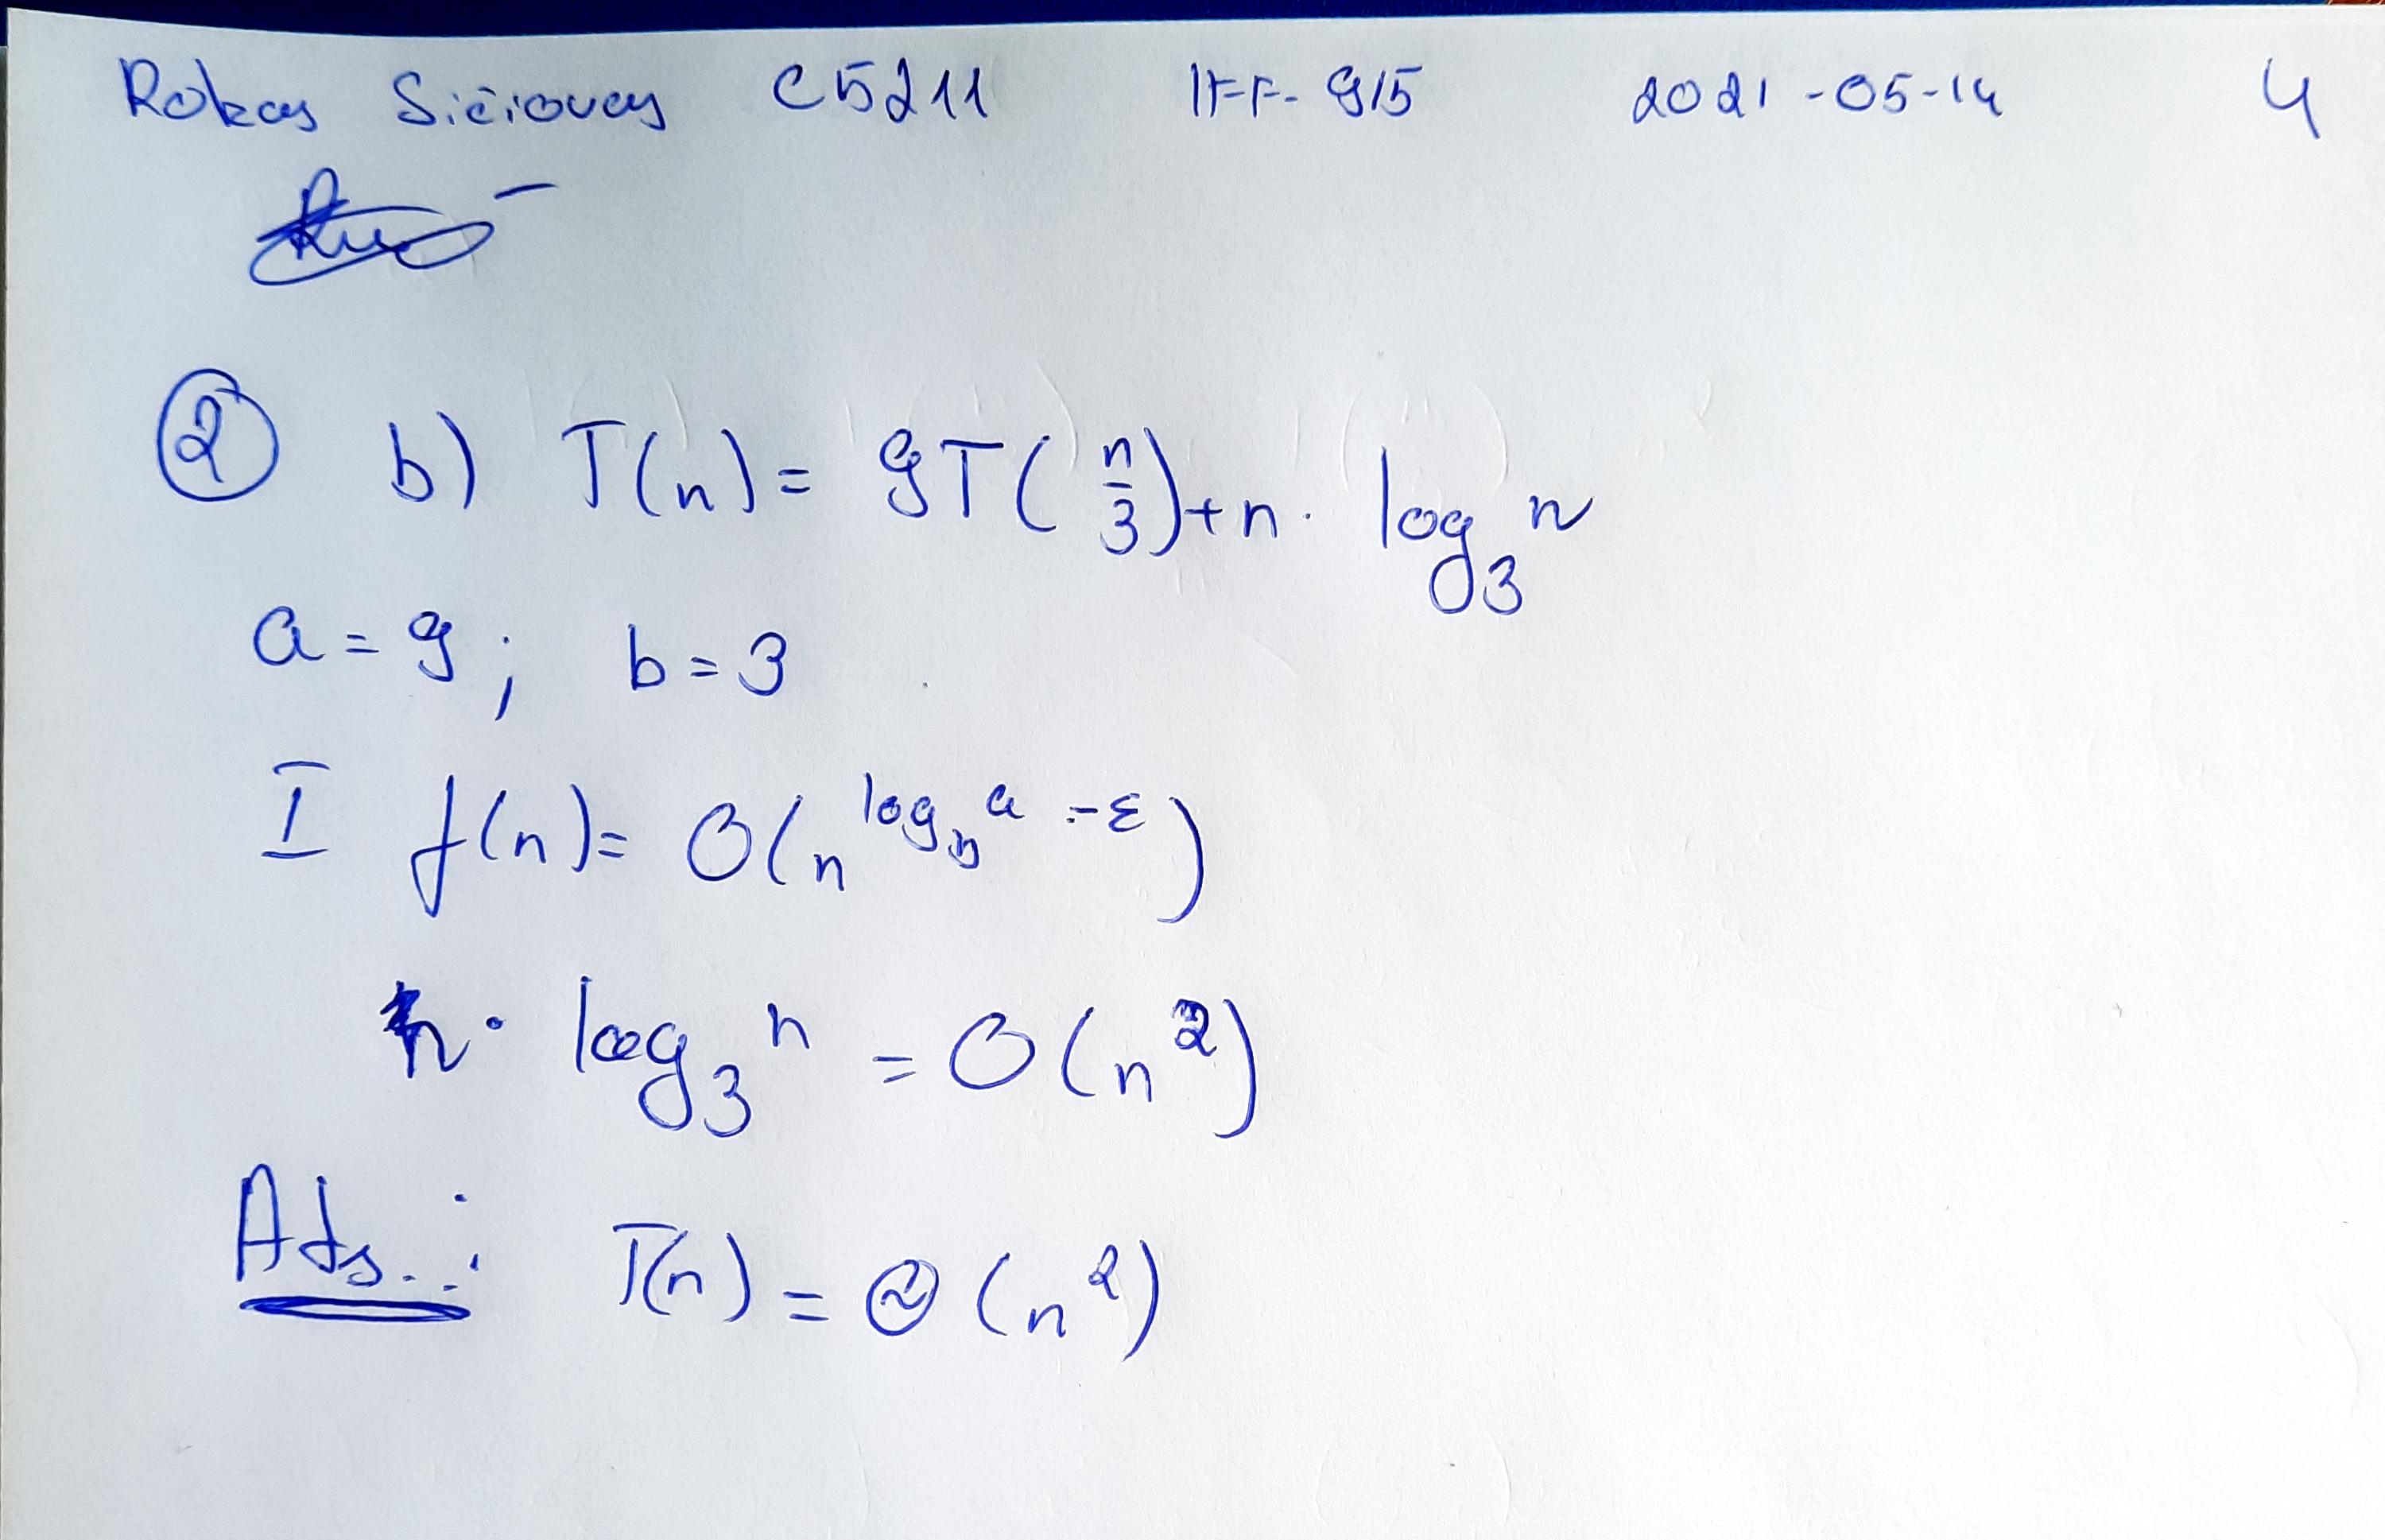 Rokas Sičiovas C5211 IFF-9/5 2021-05-14 4
② b) T(n) = 9T(n/3) + n · log₃ n
a = 9; b = 3
I f(n) = O(n^(log_b a - ε))
n · log₃ n = O(n²)
Ats.: T(n) = Θ(n²)